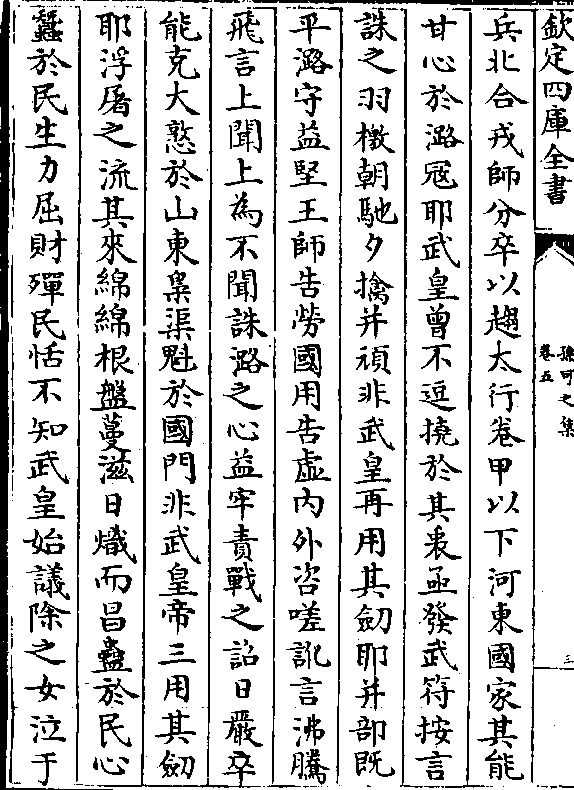 欽定四庫全書
孫可之集
卷五
三
兵北合戎師分卒以趨太行卷甲以下河東國家其能
甘心於潞冦耶武皇曾不逗撓於其衷亟發武符按言
誅之羽檄朝馳夕擒并頑非武皇再用其劒耶并部既
平潞守益堅王師告勞國用告虛内外咨嗟訛言沸騰
飛言上聞上為不聞誅潞之心益牢責戰之詔日嚴卒
能克大憝於山東梟渠魁於國門非武皇帝三用其劒
耶浮屠之流其來綿綿根盤蔓滋日熾而昌蠱於民心
蠶於民生力屈財殫民恬不知武皇始議除之女泣于